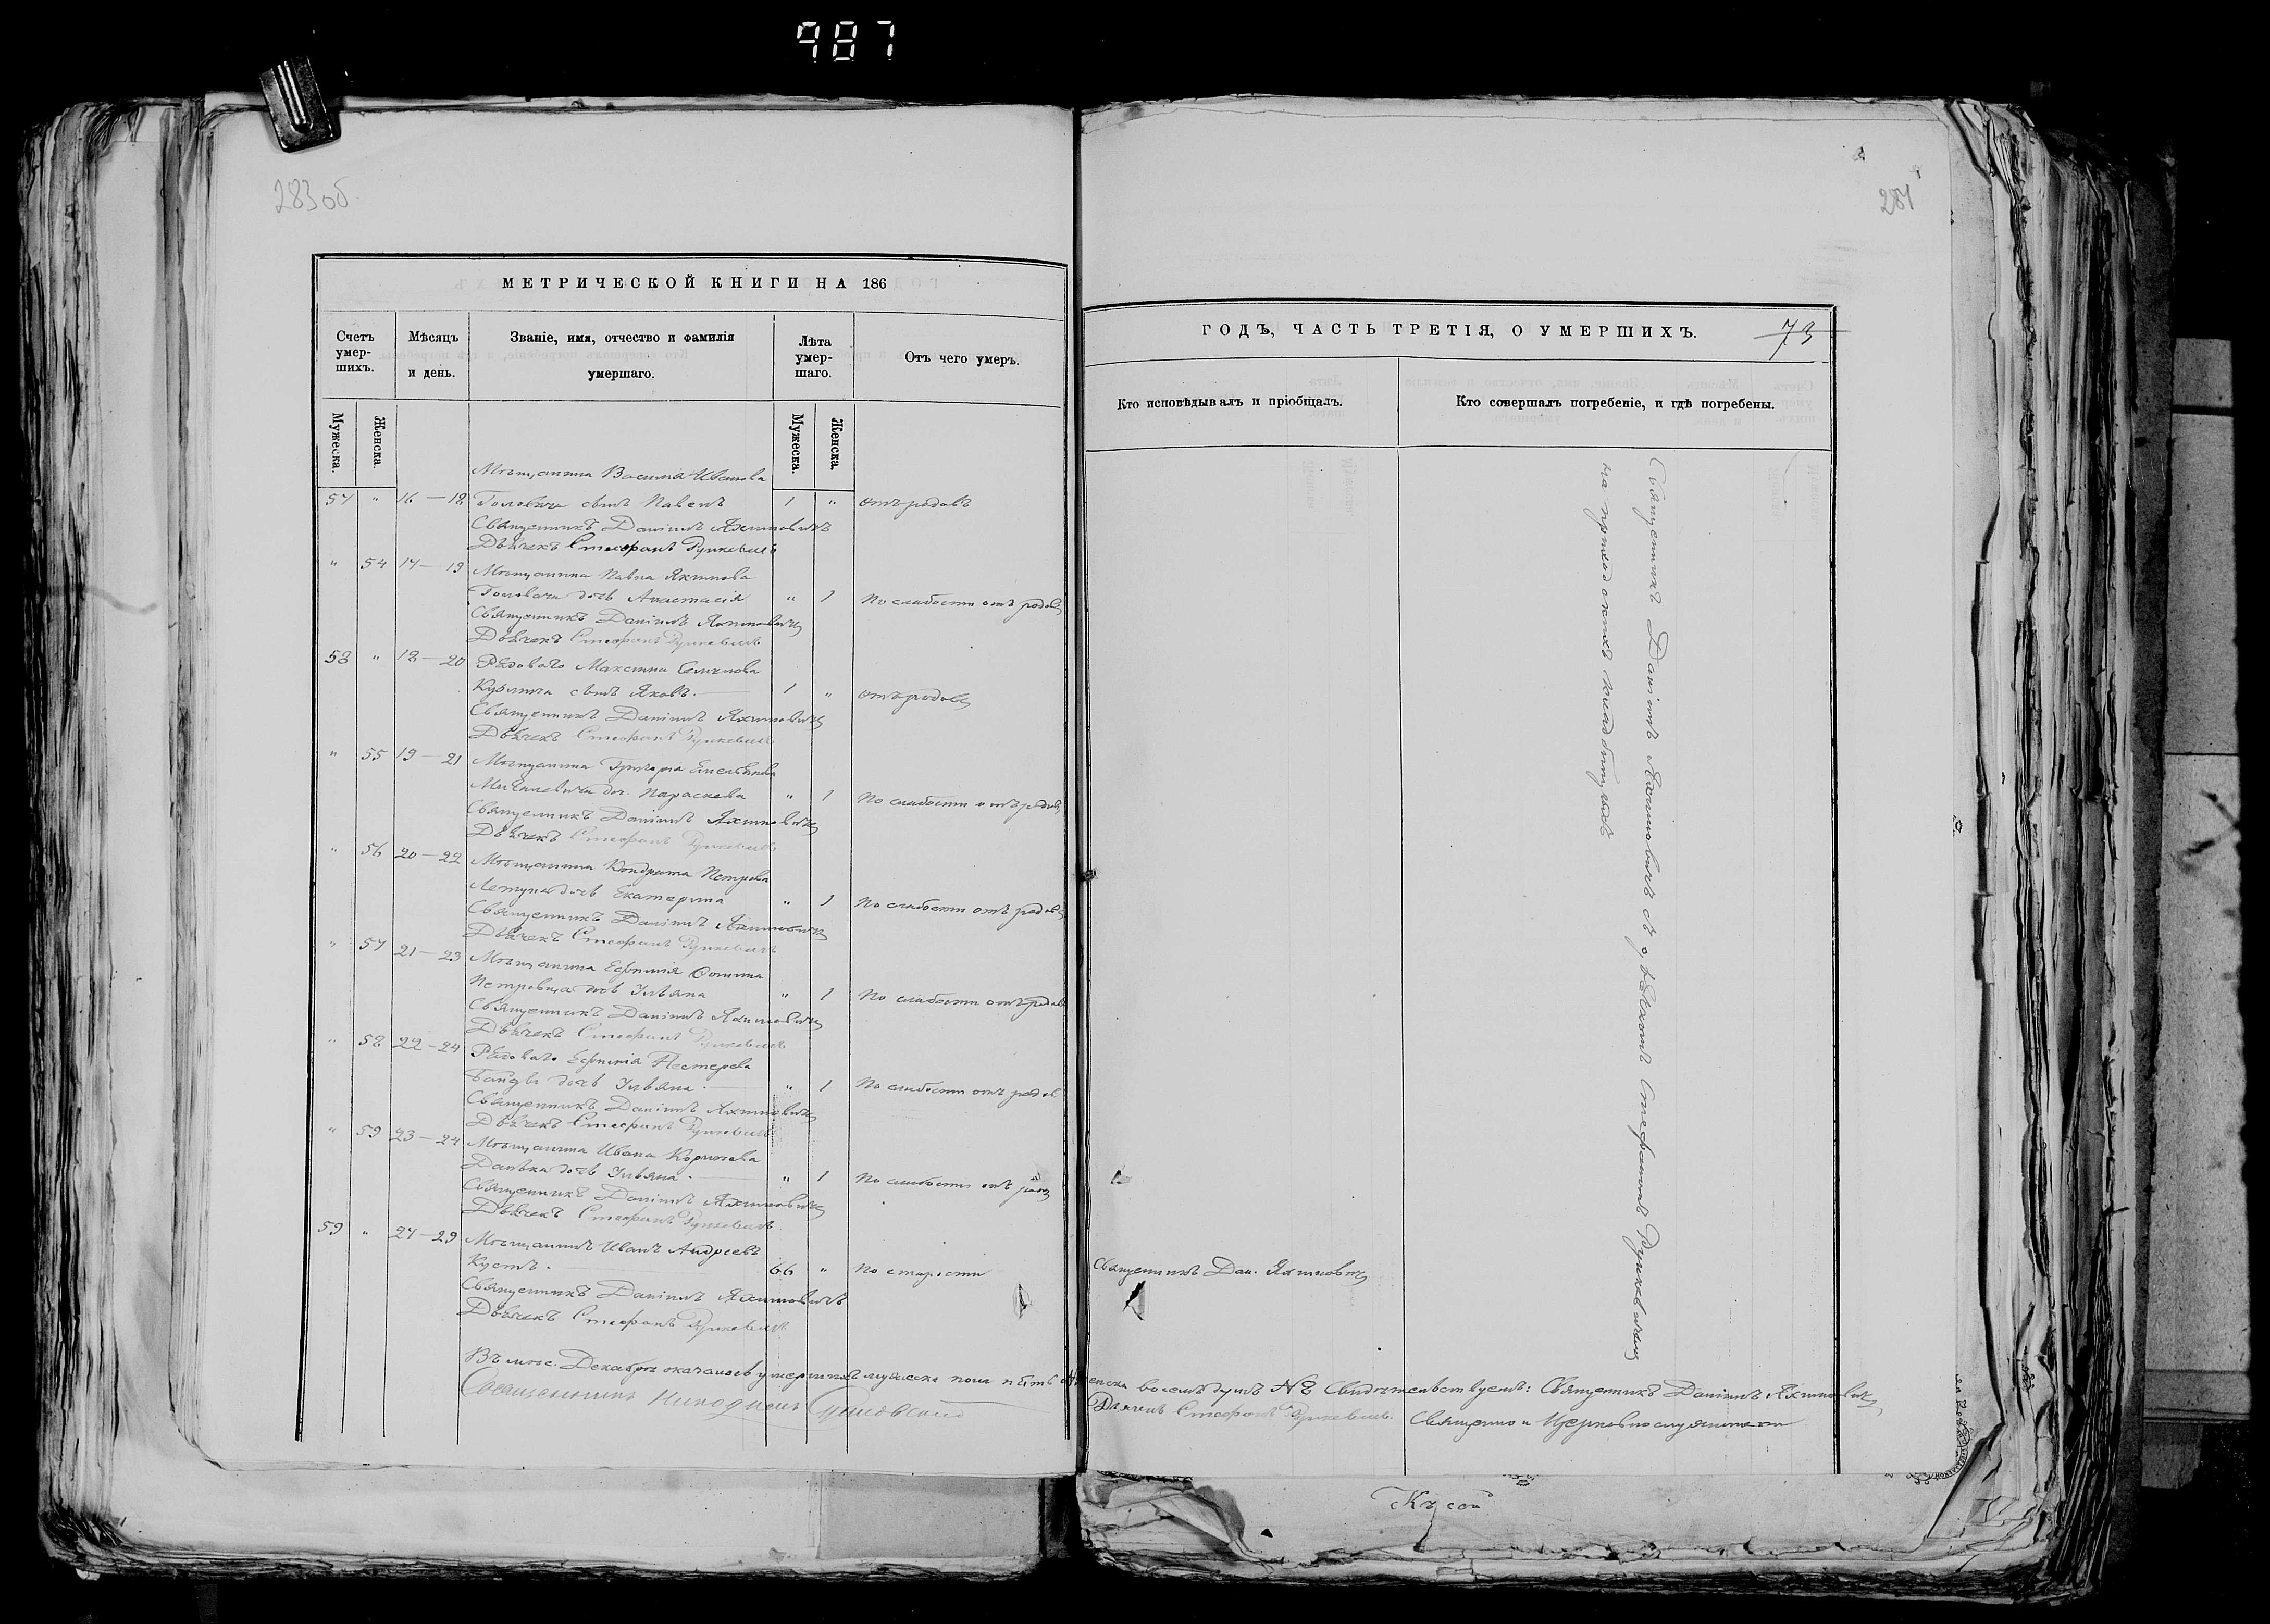 987
283 об
МЕТРИЧЕСКОЙ КНИГИ НА 186
Счетъ умер-шихъ.
Мѣсяцъ и день.
Званіе, имя, отчество и фамилія умершаго.
Лѣта умер-шаго.
Отъ чего умеръ.
Мужеска.
Женска.
Мужеска.
Женска.
Мѣщанина Василія Иванова
57 " 16 — 18 Головача сынъ Павелъ 1 " отъ родовъ
Священникъ Даніилъ Яхимовичъ
Дьячекъ Стефанъ Рункевичъ
" 54 17 — 19 Мѣщанина Павла Якимова
Головача дочь Анастасія " 1 По слабости отъ родовъ
Священникъ Даніилъ Яхимовичъ
Дьячекъ Стефанъ Рункевичъ
58 " 18 — 20 Рядоваго Максима Семенова
сынъ Яковъ. 1 " отъ родовъ
Священникъ Даніилъ Яхимовичъ
Дьячекъ Стефанъ Рункевичъ
" 55 19 — 21 Мѣщанина Григорія Емельянова
доч. Параскева " 1 По слабости отъ родовъ
Священникъ Даніилъ Яхимовичъ
Дьячекъ Стефанъ Рункевичъ
" 56 20 — 22 Мѣщанина Кондрата Петрова
Летуна дочь Екатерина " 1 По слабости отъ родовъ
Священникъ Даніилъ Яхимовичъ
Дьячекъ Стефанъ Рункевичъ
" 57 21 — 23 Мѣщанина Ефимія Фомина
дочь Ульяна " 1 По слабости отъ родовъ
Священникъ Даніилъ Яхимовичъ
Дьячекъ Стефанъ Рункевичъ
" 58 22 — 24 Рядоваго Ефимія Нестерова
Байды дочь Ульяна. " 1 По слабости отъ родов
Священникъ Даніилъ Яхимовичъ
Дьячекъ Стефанъ Рункевичъ
" 59 23 — 24 Мѣщанина Ивана Корнѣева
дочь Ульяна. " 1 По слабости отъ род
Священникъ Даніилъ Яхимовичъ
Дьячекъ Стефанъ Рункевичъ
59 " 27 — 29 Мѣщанинъ Иванъ Андреевъ
Кустъ. 66 " По старости
Священникъ Даніилъ Яхимовичъ
Дьячекъ Стефанъ Рункевичъ
284
ГОДЪ, ЧАСТЬ ТРЕТІЯ, О УМЕРШИХЪ. 73
Кто исповѣдывалъ и пріобщалъ.
Кто совершалъ погребеніе, и гдѣ погребены.
Священникъ Даніилъ Яхимовичъ съ дьячкомъ Стефаномъ Рункевичемъ
на приходскихъ кладбищахъ
Священникъ Дан. Яхимовичъ
Въ мѣс. Декабрѣ оказалось умершихъ мужеска пола пять женска восемь душъ № Свидѣтельствуемъ: Священникъ Даніилъ Яхимовичъ
Священникъ
Дьячекъ Стефанъ Рункевичъ. Священно и Церковнослужители
Къ сей